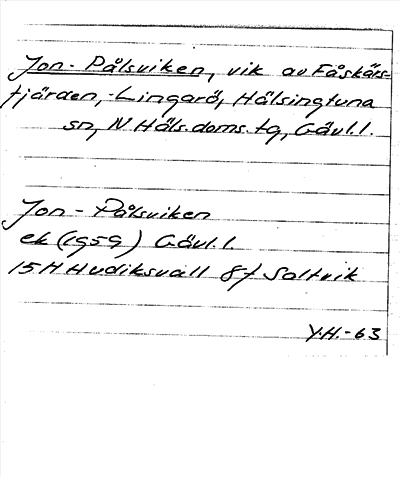 Jon-Pålsviken, vik av Fåskärs-
fjärden, Lingarö, Hälsingtuna
sn, N. Häls. doms. tg, Gävl. l.
Jon-Pålsviken
ek (1959) Gävl. l
15H Hudiksvall 8f Saltvik
Y.H.-63